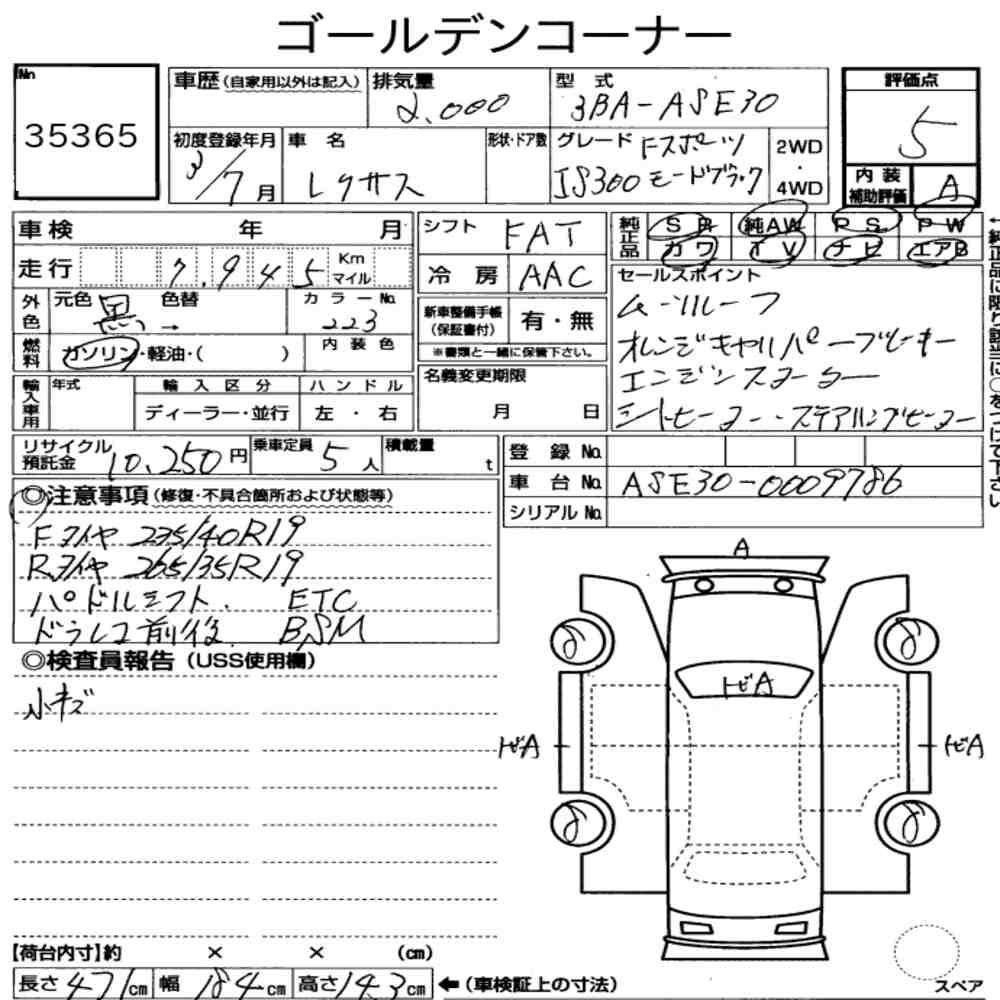 ゴールデンコーナー
No
35365
車歴(自家用以外は記入)
排気量
2,000
型 式
3BA-ASE30
評価点
5
初度登録年月
3/7月
車 名
レクサス
形状・ドア数
グレード Fスポーツ
IS300 モードブラック
2WD
・
4WD
内 装
補助評価
A
車検 年 月
走行 7,945 Km マイル
外色
元色 黒 → 色替
カラーNo.
223
燃料
ガソリン・軽油・( )
内 装 色
輸入車用
年式
輸 入 区 分
ディーラー・並行
ハ ン ド ル
左 ・ 右
シフト FAT
冷 房 AAC
新車整備手帳
(保証書付)
有・無
※書類と一緒に保管下さい。
名義変更期限
月 日
純正品
SR 純AW PS PW
カワ TV ナビ エアB
セールスポイント
ムーンルーフ
オレンジキャリパー ブレーキ
エンジンスターター
シートヒーター・ステアリングヒーター
←純正品に限り該当に○をつけて下さい
リサイクル
預託金
10,250円
乗車定員 5人
積載量 t
登 録 No.
車 台 No. ASE30-0009786
シリアル No.
◎注意事項(修復・不具合箇所および状態等)
Fタイヤ 235/40R19
Rタイヤ 265/35R19
パドルシフト. ETC
ドラレコ前後 BSM
◎検査員報告(USS使用欄)
小キズ
A
トビA
トビA
トビA
【荷台内寸】約 × × (cm)
長さ 471cm 幅 184cm 高さ 143cm ←(車検証上の寸法)
スペア